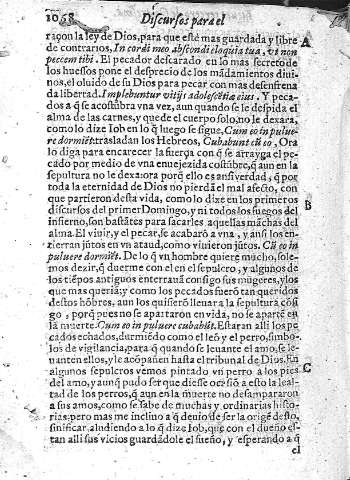 1058 Discursos para el
raçon la ley de Dios, para que estè mas guardada y libre
de contrarios, In cordi meo abscondi eloquia tua, vt non
A
peccem tibi. El pecador descarado en lo mas secreto de
los huessos pone el desprecio de los mãdamientos diui-
nos, el oluido de su Dios para pecar con mas desenfrena
da libertad. Implebuntur vitijs adolescẽtiæ eius, Y peca-
dos a q̃ se acostũbra vna vez, aun quando se le despida el
alma de las carnes, y quede el cuerpo solo, no le dexara,
como lo dize Iob en lo q̃ luego se sigue, Cum eo in pulue
re dormiẽt: trasladan los Hebreos, Cubabunt cũ eo, Ora
lo diga para encarecer la fuerça con q̃ se arrayga el pe-
cado por medio de vna enuejezida costũbre, q̃ aun en la
sepultura no le dexa: ora porq̃ ello es ansi verdad, q̃ por
toda la eternidad de Dios no pierdã el mal afecto, con
que partieron desta vida, como lo dixe en los primeros
discursos del primer Domingo, y ni todos los fuegos del
B
infierno, son bastãtes para sacarles aquellas mãchas del
alma. El viuir, y el pecar, se acabarõ a vna, y ansi los en-
zierran jũtos en vn ataud, como viuieron jũtos. Cũ eo in
puluere dormiẽt. De lo q̃ vn hombre quiere mucho, sole-
mos dezir, q̃ duerme con el en el sepulcro, y algunos de
los tiẽpos antiguos enterrarõ consigo sus mugeres, y los
que mas querian: y como los pecados fuerõ tan queridos
destos hõbres, aun los quisierõ lleuar a la sepultura cõsi
go, porq̃ pues no se apartaron en vida, no se apartẽ en
la muerte. Cum eo in puluere cubabũt. Estaran alli los pe
cados echados, durmiẽdo como el leõ y el perro, simbo-
los de vigilancia, para q̃ quando se leuante el amo, se le-
uanten ellos, y le acõpañen hasta el tribunal de Dios. En
algunos sepulcros vemos pintado vn perro a los pies
C
del amo, y aunq̃ pudo ser que diesse ocasiõ a esto la leal-
tad de los perros, q̃ aun en la muerte no desampararon
a sus amos, como se sabe de muchas y ordinarias histo-
rias: pero mas me inclino a q̃ deuio de ser la origẽ desto,
sinificar, aludiendo a lo q̃ dize Iob, que con el dueño es-
tan alli sus vicios guardãdole el sueño, y esperando a q̃
el